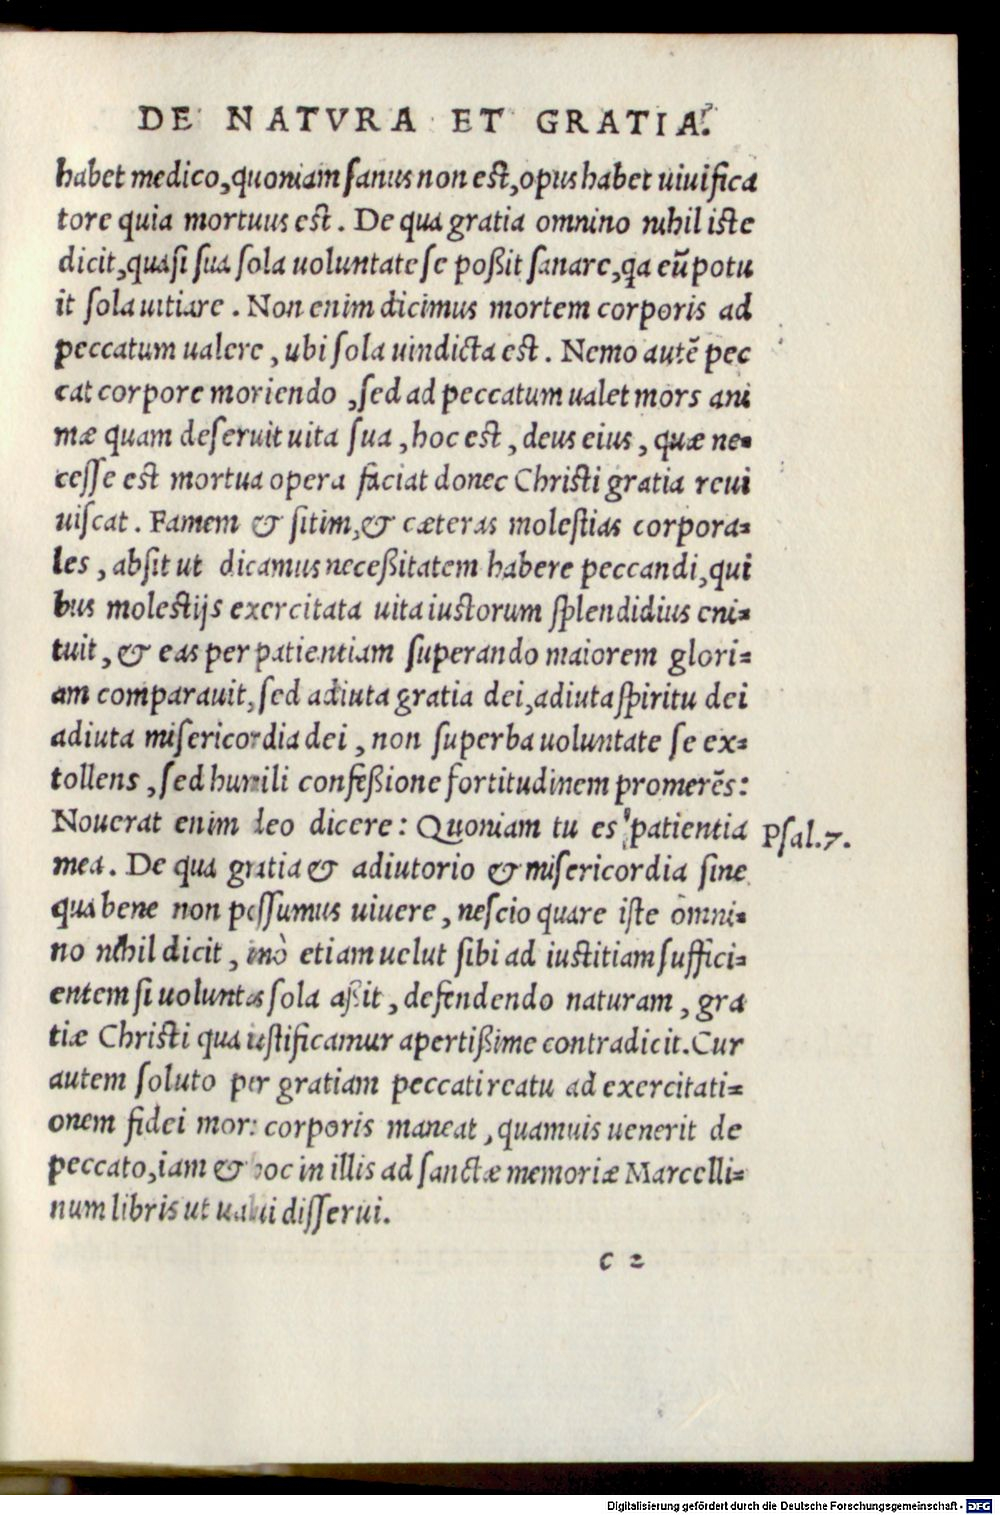 DE NATVRA ET GRATIA.
habet medico, quoniam sanus non est, opus habet uiuifica
tore quia mortuus est. De qua gratia omnino nihil iste
dicit, quasi sua sola uoluntate se poßit sanare, qa eū potu
it sola uitiare. Non enim dicimus mortem corporis ad
peccatum ualere, ubi sola uindicta est. Nemo autē pec
cat corpore moriendo, sed ad peccatum ualet mors ani
mæ quam deseruit uita sua, hoc est, deus eius, quæ ne-
cesse est mortua opera faciat donec Christi gratia reui
uiscat. Famem & sitim, & cæteras molestias corpora-
les, absit ut dicamus neceßitatem habere peccandi, qui
bus molestijs exercitata uita iustorum splendidius eni-
tuit, & eas per patientiam superando maiorem glori-
am comparauit, sed adiuta gratia dei, adiuta spiritu dei
adiuta misericordia dei, non superba uoluntate se ex-
tollens, sed humili confeßione fortitudinem promerēs:
Nouerat enim deo dicere: Quoniam tu es patientia
mea. De qua gratia & adiutorio & misericordia sine
qua bene non possumus uiuere, nescio quare iste omni-
no nihil dicit, imò etiam uelut sibi ad iustitiam suffici-
entem si uoluntas sola aßit, defendendo naturam, gra
tiæ Christi qua iustificamur apertißime contradicit. Cur
autem soluto per gratiam peccati reatu ad exercitati-
onem fidei mors corporis maneat, quamuis uenerit de
peccato, iam & hoc in illis ad sanctæ memoriæ Marcelli-
num libris ut ualui disserui.
Psal.7.
c 2
Digitalisierung gefördert durch die Deutsche Forschungsgemeinschaft - DFG